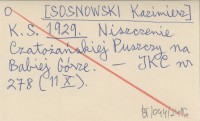 O [SOSNOWSKI Kazimierz]
K. S. 1929. Niszczenie
Czatożańskiej Puszczy na
Babiej Górze. — IKC nr
278 (11 X).